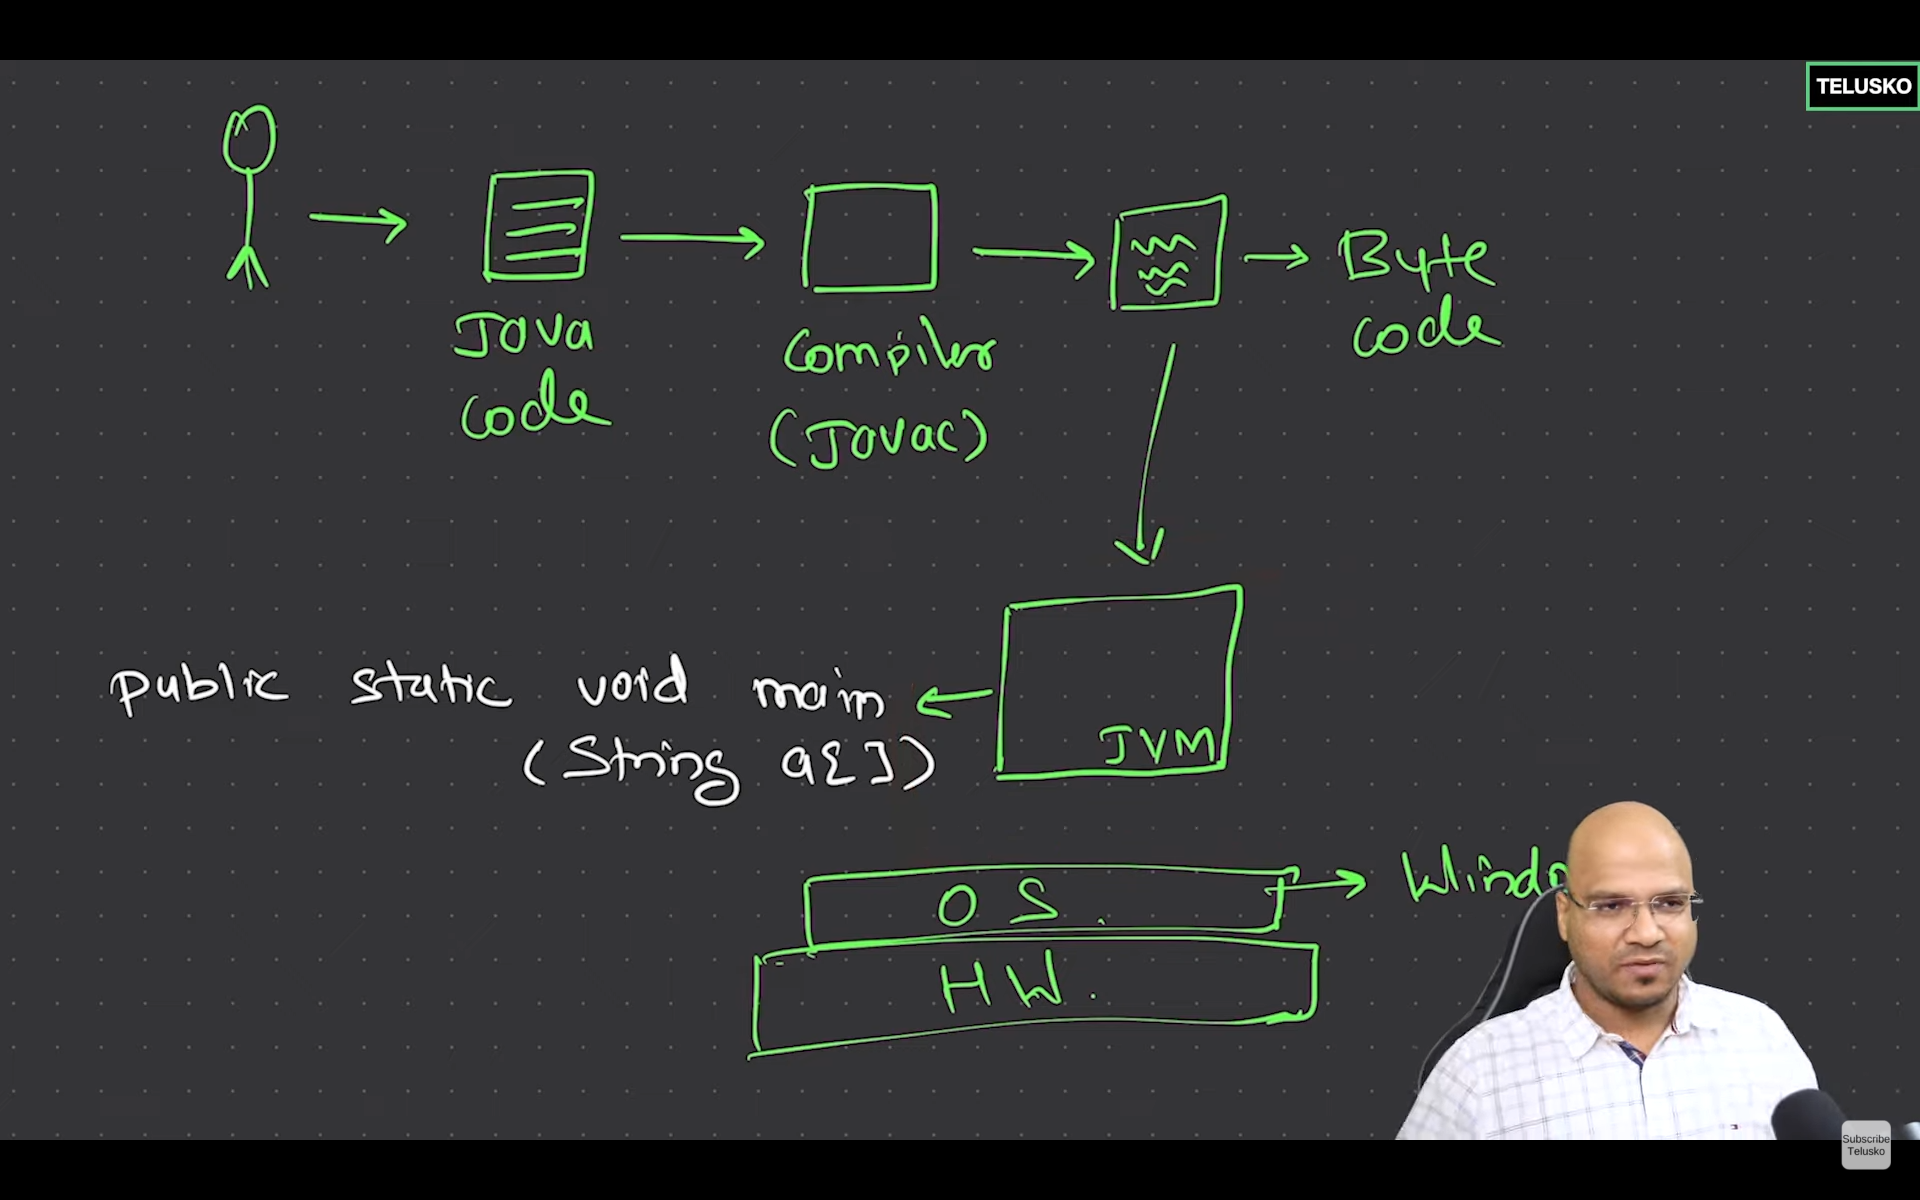 TELUSKO
Java
code
Compiler
(Javac)
Byte
code
public static void main
(String a[])
JVM
OS.
HW.
Subscribe
Telusko